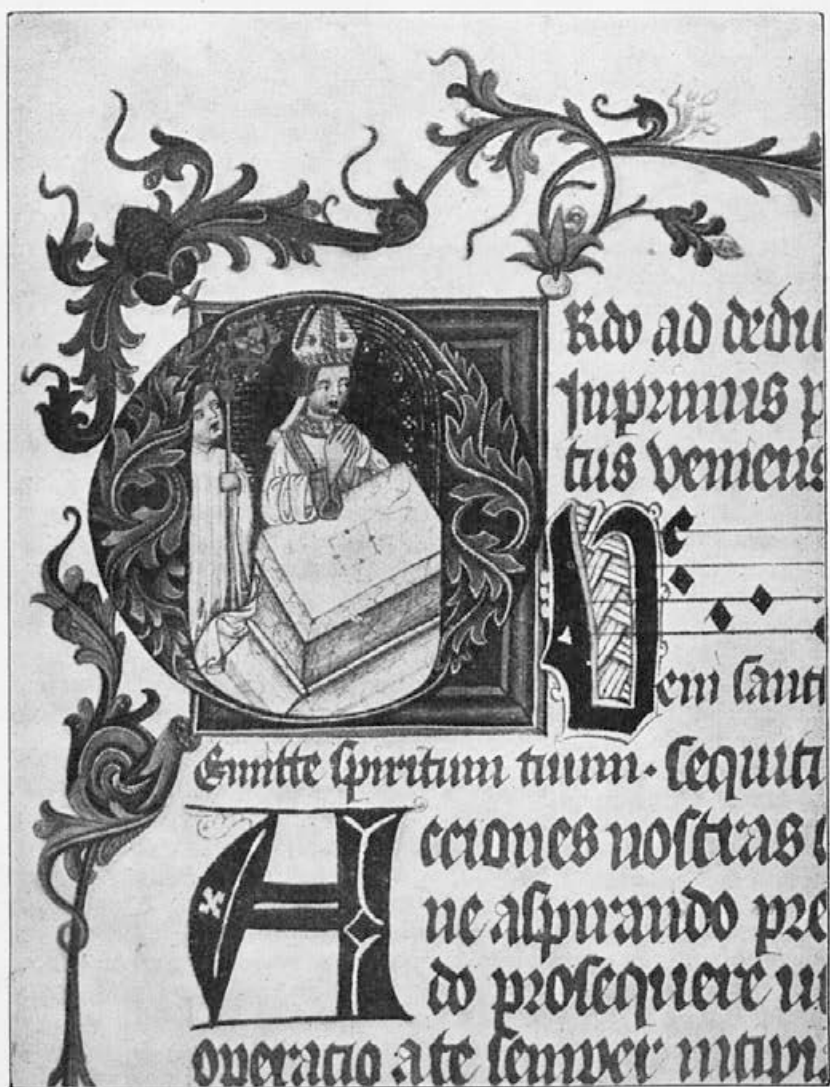 ORdo ad dedu
Inprimis p
tus veniens
Veni sanct
Emitte spiritum tuum. sequit
Acciones nostras
ne aspirando pre
do prosequere u
operacio a te semper incipi